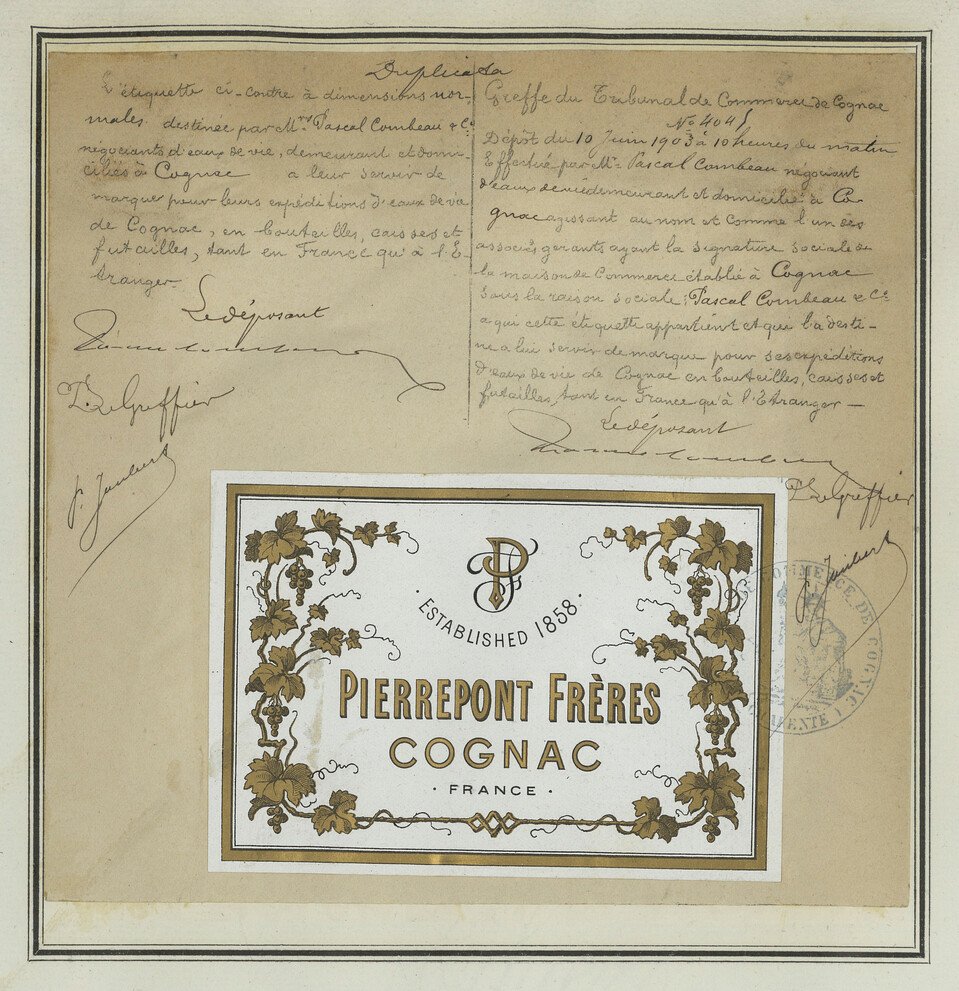 Duplicata
L'étiquette ci-contre à dimensions nor-
males destinée par Mrs Pascal Combeau & Cie
négociants d'eaux de vie, demeurant et domi-
ciliés à Cognac a leur servir de
marque pour leurs expéditions d'eaux de vie
de Cognac, en bouteilles, caisses et
futailles, tant en France qu'à l'E-
tranger.
Le déposant
Le Greffier
Greffe du Tribunal de Commerce de Cognac
No 4045
Dépôt du 10 Juin 1903 à 10 heures du matin
Effectué par Mr Pascal Combeau négociant
d'eaux de vie demeurant et domicilié à Co-
gnac agissant au nom et comme l'un des
associés gérants ayant la signature sociale de
la maison de Commerce établie à Cognac
sous la raison sociale: Pascal Combeau & Cie
a qui cette étiquette appartient et qui l'a desti-
née a lui servir de marque pour ses expéditions
d'eaux de vie de Cognac en bouteilles, caisses et
futailles, tant en France qu'à l'Etranger —
Le déposant
Le Greffier
PF
· ESTABLISHED 1858 ·
PIERREPONT FRÈRES
COGNAC
· FRANCE ·
COMMERCE DE COGNAC
CHARENTE